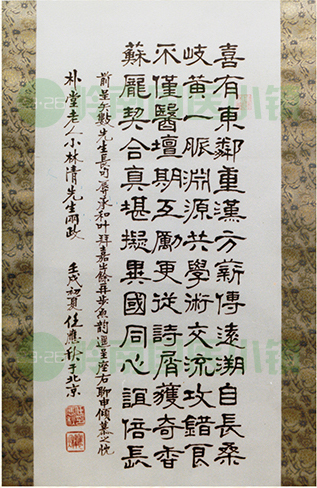 喜有東鄰重漢方薪傳遠溯自長桑
岐黃一脈淵源共學術交流攻錯良
不僅醫壇期互勵更從詩屑獲奇香
蘇龐契合真堪擬異國同心誼倍長
前呈矢數先生長句辱承和叶拜嘉餘再步魚韵呈座右聊申傾慕之忱
朴堂老人小林清先生兩政
壬戌初夏任應秋于北京